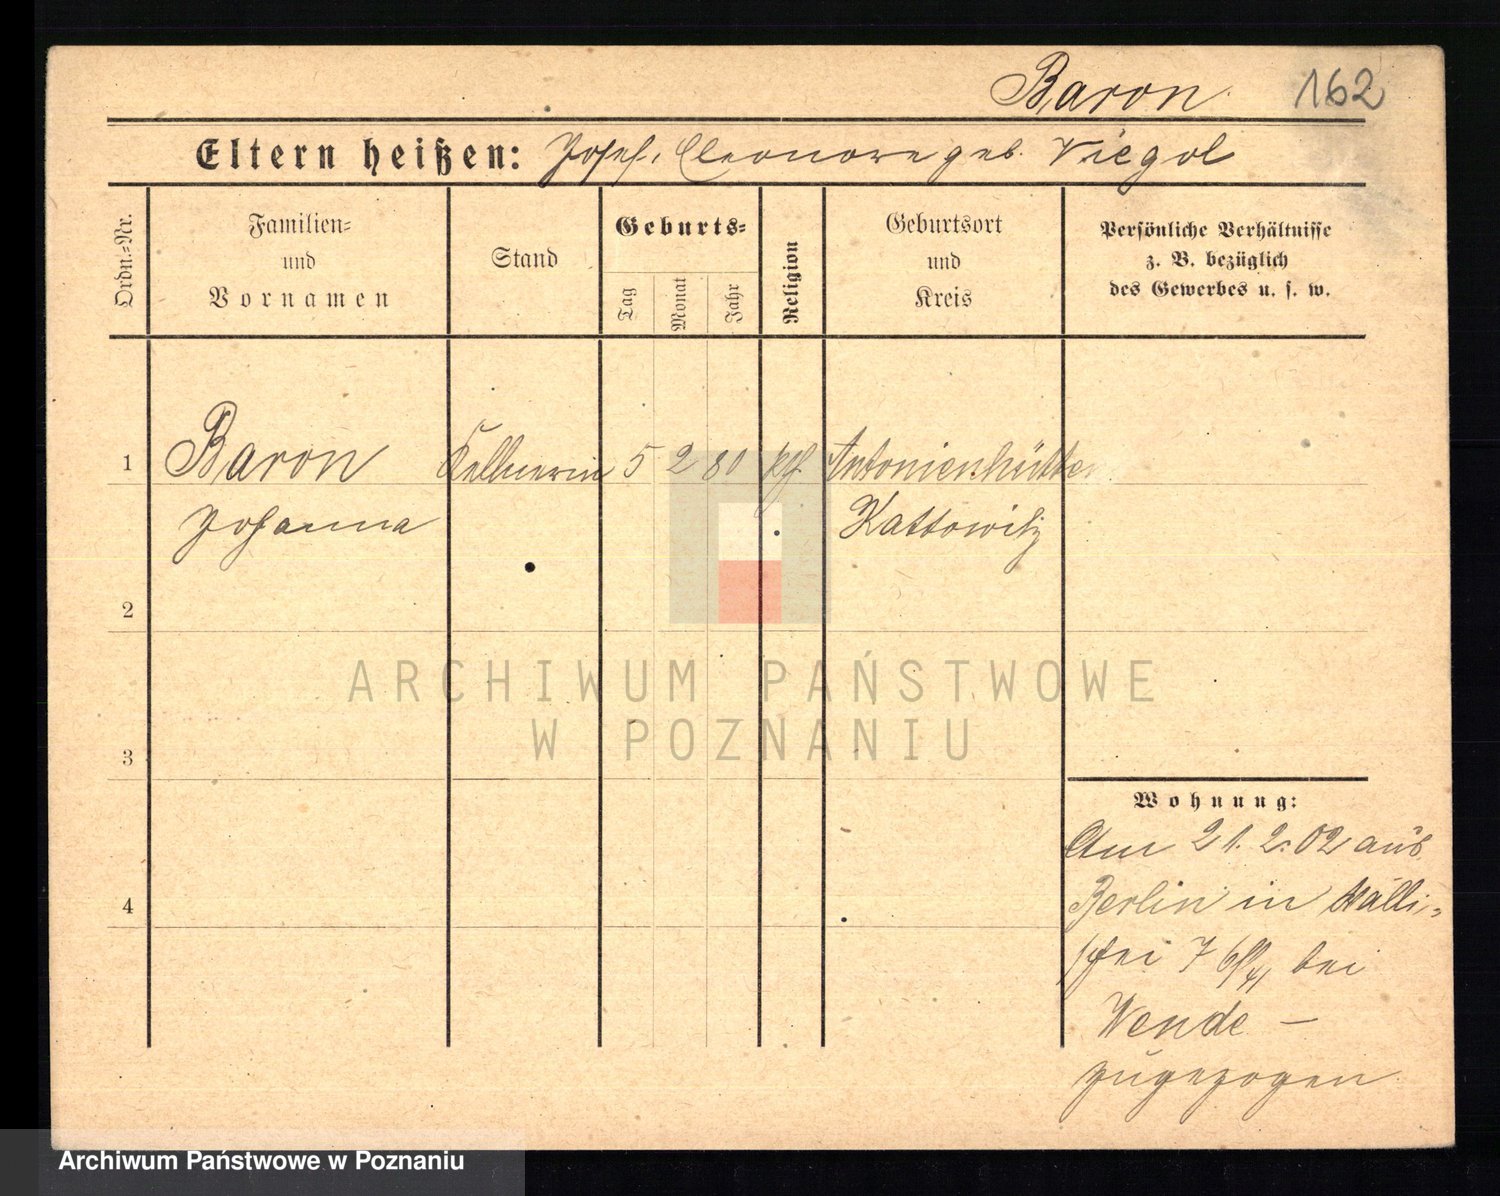 Baron 162
Eltern heißen: Josef, Eleonore geb. Viegol
Ordn.=Nr.
Familien=
und
Vornamen
Stand
Geburts=
Tag
Monat
Jahr
Religion
Geburtsort
und
Kreis
Persönliche Verhältnisse
z. B. bezüglich
des Gewerbes u. s. w.
1 Baron Kellnerin 5 2 80 kth. Antonienhütte
Johanna Kattowitz
2
3
4
ARCHIWUM PAŃSTWOWE
W POZNANIU
Wohnung:
Am 21.2.02 aus
Berlin in
7 bei
Wende –
zugezogen
Archiwum Państwowe w Poznaniu